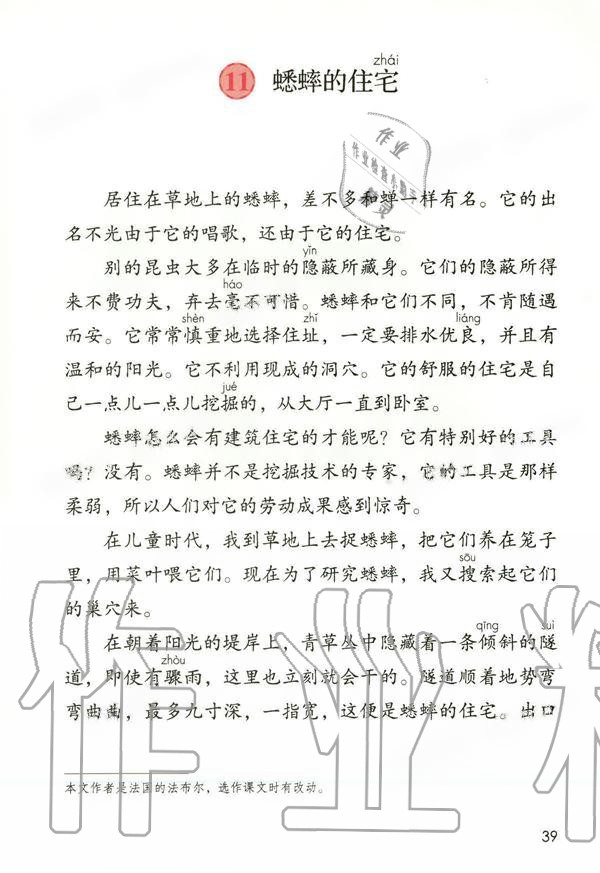 zhái
11 蟋蟀的住宅
居住在草地上的蟋蟀，差不多和蝉一样有名。它的出
名不光由于它的唱歌，还由于它的住宅。
yǐn
别的昆虫大多在临时的隐蔽所藏身。它们的隐蔽所得
háo
来不费功夫，弃去毫不可惜。蟋蟀和它们不同，不肯随遇
shèn zhǐ liáng
而安。它常常慎重地选择住址，一定要排水优良，并且有
温和的阳光。它不利用现成的洞穴。它的舒服的住宅是自
jué
己一点儿一点儿挖掘的，从大厅一直到卧室。
蟋蟀怎么会有建筑住宅的才能呢？它有特别好的工具
吗？没有。蟋蟀并不是挖掘技术的专家，它的工具是那样
柔弱，所以人们对它的劳动成果感到惊奇。
在儿童时代，我到草地上去捉蟋蟀，把它们养在笼子
sōu
里，用菜叶喂它们。现在为了研究蟋蟀，我又搜索起它们
的巢穴来。
qīng suì
在朝着阳光的堤岸上，青草丛中隐藏着一条倾斜的隧
zhòu
道，即使有骤雨，这里也立刻就会干的。隧道顺着地势弯
弯曲曲，最多九寸深，一指宽，这便是蟋蟀的住宅。出口
本文作者是法国的法布尔，选作课文时有改动。
39
作业
作业料